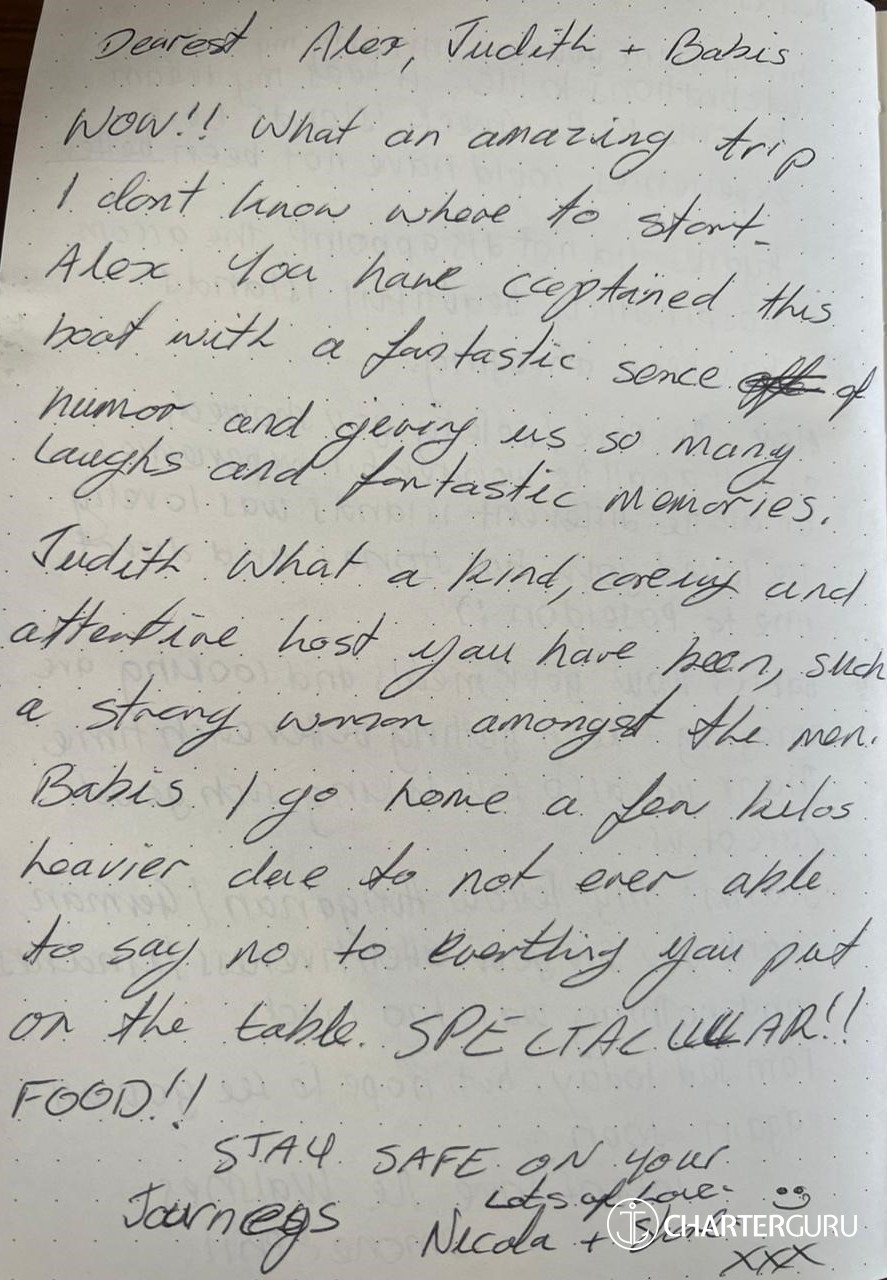 Dearest Alex, Judith + Babis
WOW!! What an amazing trip
I dont know where to start.
Alex you have captained this
boat with a fantastic sence of
humor and geving us so many
Laughs and fantastic memories.
Judith What a kind, careing and
attentive host you have been, such
a strong woman amongst the men.
Babis I go home a few kilos
heavier due to not ever able
to say no to everthing you put
on the table. SPECTACULAR!!
FOOD!!
STAY SAFE ON YOUR
Journegs
Lots of Love.
Nicola +
CHARTERGURU
xxx